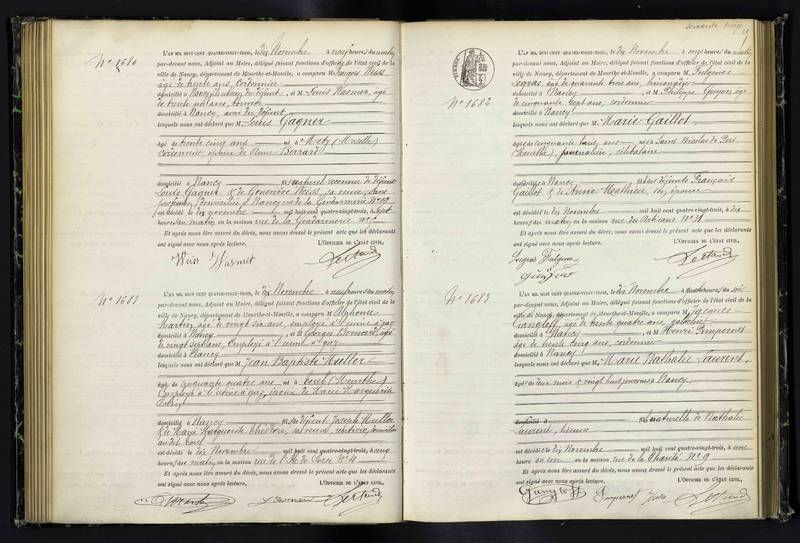 soixante treize
N° 1680
L'AN MIL HUIT CENT QUATRE-VINGT-TROIS, le dix Novembre à neuf heures du matin
par-devant nous, Adjoint au Maire, délégué faisant fonctions d'officier de l'état civil de la
ville de Nancy, département de Meurthe-et-Moselle, a comparu M. François Weiss,
âgé de trente ans, Cordonnier
domicilié à Nancy, du défunt, et M. Louis Hasmer, âgé
de trente ans,
domicilié à Nancy, du défunt
lesquels nous ont déclaré que M. Louis Gagner
âgé de trente cinq ans né à Metz (Moselle)
cordonnier, époux de Anne Berrard
domicilié à Nancy fils naturel reconnu de défunt
Louis Gagner & de Geneviève Weiss, sa veuve, sans
profession, domiciliée à Nancy rue de la Gendarmerie N° 10
est décédé le dix novembre mil huit cent quatre-vingt-trois, à sept
heures du matin, en la maison rue de la Gendarmerie N°
Et après nous être assuré du décès, nous avons dressé le présent acte que les déclarants
ont signé avec nous après lecture. L'OFFICIER DE L'ÉTAT CIVIL,
Weiss Hasmer
N° 1681
L'AN MIL HUIT CENT QUATRE-VINGT-TROIS, le dix Novembre à neuf heures du matin
par-devant nous, Adjoint au Maire, délégué faisant fonctions d'officier de l'état civil de la
ville de Nancy, département de Meurthe-et-Moselle, a comparu M. Alphonse
Martin, âgé de vingt six ans, employé à l'usine à gaz
domicilié à Nancy, et M. Georges Bonnard, âgé
de vingt sept ans, Employé à l'usine à gaz
domicilié à Nancy
lesquels nous ont déclaré que M. Jean Baptiste Muller
âgé de Cinquante quatre ans né à Toul (Meurthe)
Employé à l'usine à gaz, époux de Marie Marguerite
domicilié à Nancy fils de défunt Joseph Muller
& de Marie Marguerite Théodore, sa veuve, rentière, domiciliée
au dit Toul
est décédé le dix Novembre mil huit cent quatre-vingt-trois, à cinq
heures du matin, en la maison rue de l'Ile de Corse N° 4
Et après nous être assuré du décès, nous avons dressé le présent acte que les déclarants
ont signé avec nous après lecture. L'OFFICIER DE L'ÉTAT CIVIL,
N° 1682
L'AN MIL HUIT CENT QUATRE-VINGT-TROIS, le dix Novembre à onze heures du matin
par-devant nous, Adjoint au Maire, délégué faisant fonctions d'officier de l'état civil de la
ville de Nancy, département de Meurthe-et-Moselle, a comparu M. Fulgence
Legras, âgé de quarante trois ans,
domicilié à Nancy, et M. Philippe Guyon, âgé
de cinquante sept ans, cordonnier
domicilié à Nancy
lesquels nous ont déclaré que M. Marie Gaillot
âgée de cinquante ans née à Saint Nicolas de Port
(Meurthe), journalière, célibataire
domiciliée à Nancy fille des défunts François
Gaillot & de Anne Mathieu, son épouse
est décédée le dix Novembre mil huit cent quatre-vingt-trois, à dix
heures du matin, en la maison rue des N° 31
Et après nous être assuré du décès, nous avons dressé le présent acte que les déclarants
ont signé avec nous après lecture. L'OFFICIER DE L'ÉTAT CIVIL,
Legras Fulgence
N° 1683
L'AN MIL HUIT CENT QUATRE-VINGT-TROIS, le dix Novembre à quatre heures du soir
par-devant nous, Adjoint au Maire, délégué faisant fonctions d'officier de l'état civil de la
ville de Nancy, département de Meurthe-et-Moselle, a comparu M. Jacques
Gangloff, âgé de trente quatre ans, galochier
domicilié à Nancy, et M. Henri Simpernet
âgé de trente cinq ans, cordonnier
domicilié à Nancy
lesquels nous ont déclaré que M. Marie Nathalie Laurent
âgée de deux mois & vingt huit jours née à Nancy,
domiciliée à fille naturelle de Nathalie
Laurent,
est décédée le dix Novembre mil huit cent quatre-vingt-trois, à une
heure du soir, en la maison rue de la Charité N° 9
Et après nous être assuré du décès, nous avons dressé le présent acte que les déclarants
ont signé avec nous après lecture. L'OFFICIER DE L'ÉTAT CIVIL,
Gangloff